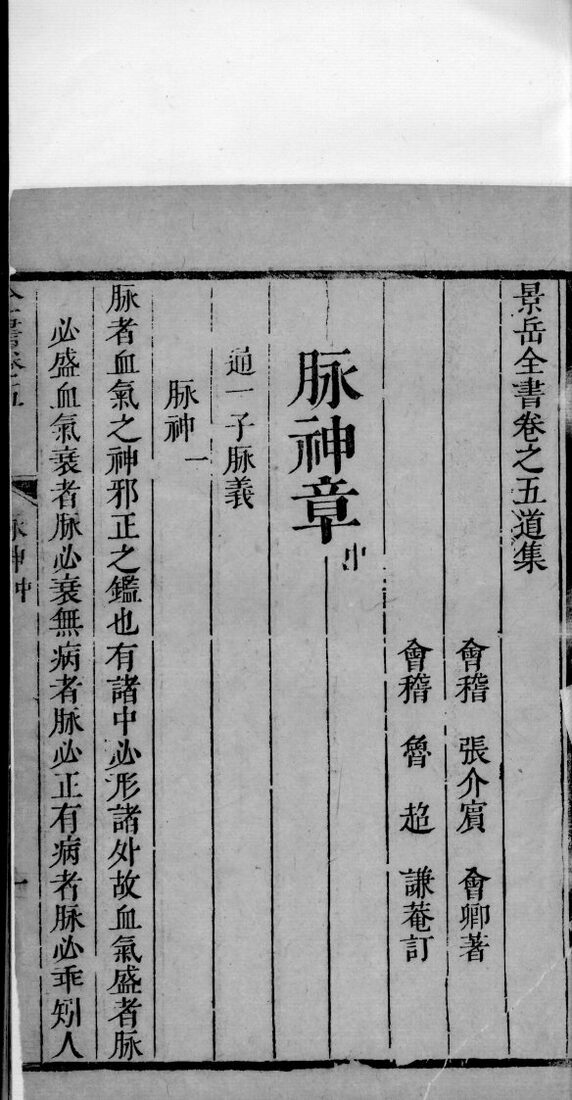 景岳全書卷之五道集
會稽 張介賓 會卿著
會稽 魯超 謙菴訂
脉神章中
通一子脉義
脉神一
脉者血氣之神邪正之鑑也有諸中必形諸外故血氣盛者脉
必盛血氣衰者脉必衰無病者脉必正有病者脉必乖矧人
全書卷五
脉神中
一